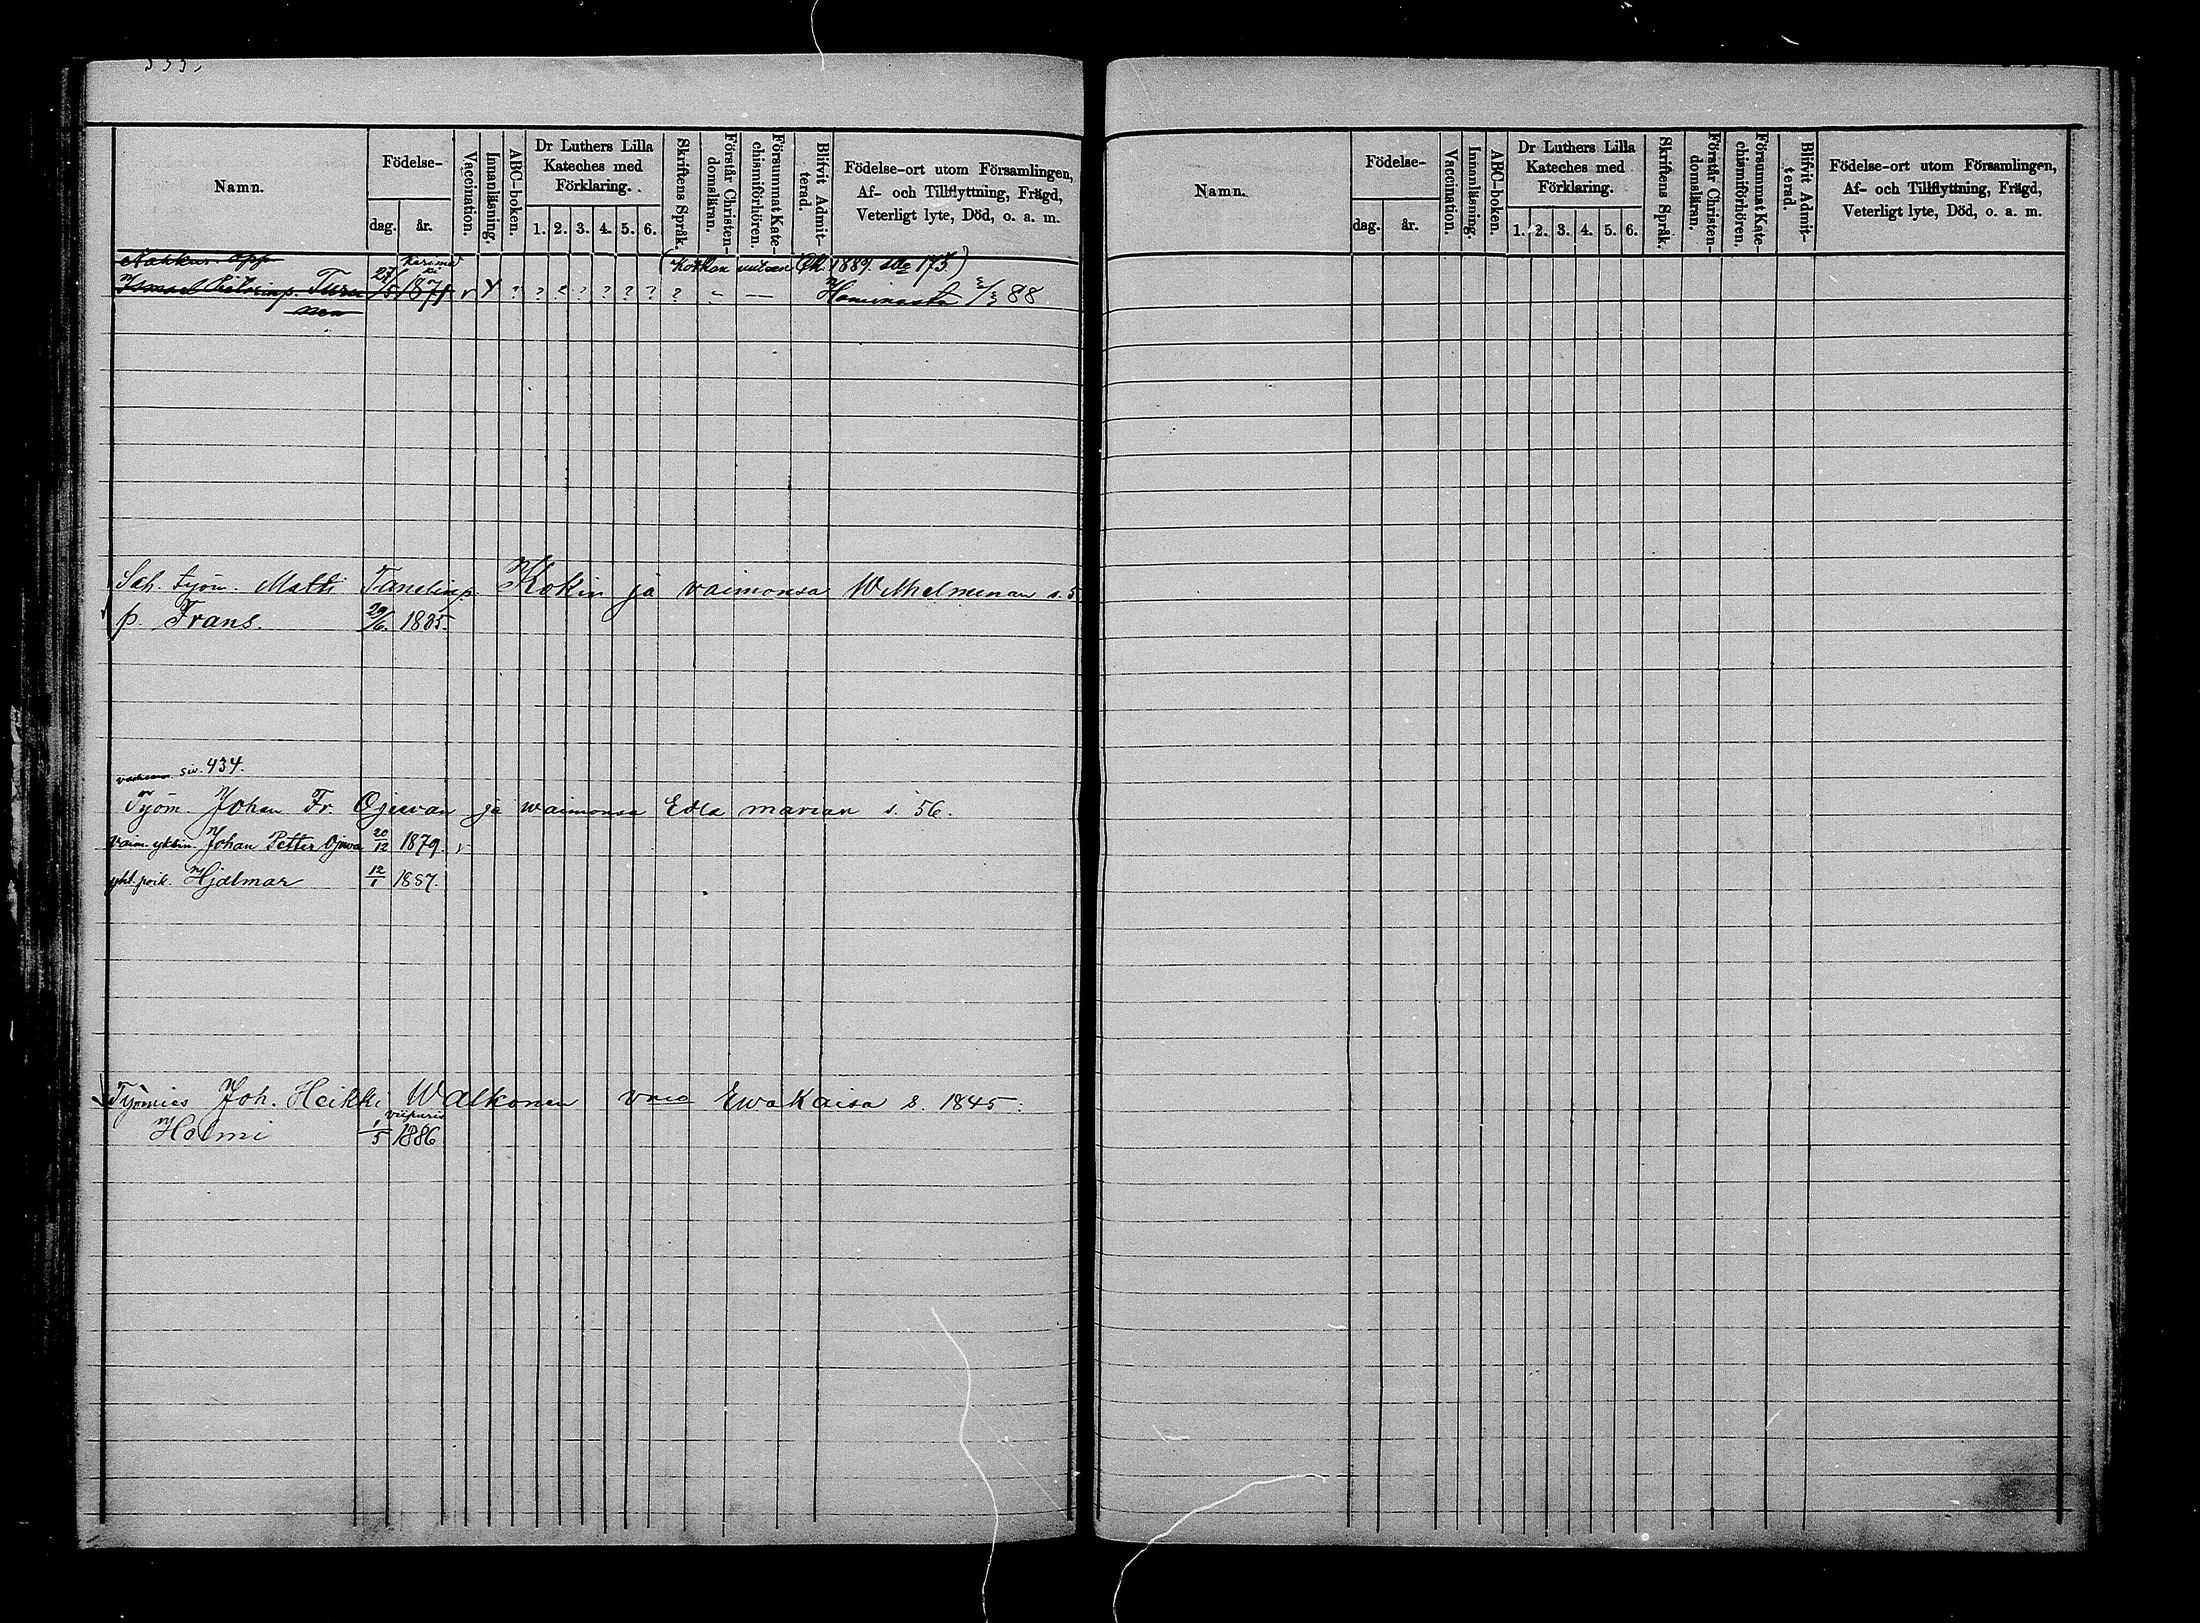 335.
Namn.
Födelse-
dag.
år.
Vaccination.
Innanläsning.
ABC-boken.
Dr Luthers Lilla
Kateches med
Förklaring.
1. 2. 3. 4. 5. 6.
Skriftens Språk.
Förstår Christen-
domsläran.
Försummat Kate-
chismiförhören.
Blifvit Admit-
terad.
Födelse-ort utom Församlingen,
Af- och Tillflyttning, Frägd,
Veterligt lyte, Död, o. a. m.
Nahkur. opp
27/5 1871 ? ? ? ? ? ? ? ? - — Haminasta 88
1889. 175.)
Matti Tanelinp. Kokin ja vaimonsa Wilhelminan s. 5
p. Frans. 29/6. 1885.
siv. 434.
Työm. Johan Fr. Ojewan ja waimonsa Edla marian s. 56.
Johan Petter Ojewa 20/12 1879. v
poik. Hjalmar 12/1 1887.
Työmies Joh. Heikki Walkonen vmo Ewa Kaisa s. 1845:
wiipuris
Helmi 1/5 1886
Namn.
Födelse-
dag.
år.
Vaccination.
Innanläsning.
ABC-boken.
Dr Luthers Lilla
Kateches med
Förklaring.
1. 2. 3. 4. 5. 6.
Skriftens Språk.
Förstår Christen-
domsläran.
Försummat Kate-
chismiförhören.
Blifvit Admit-
terad.
Födelse-ort utom Församlingen,
Af- och Tillflyttning, Frägd,
Veterligt lyte, Död, o. a. m.